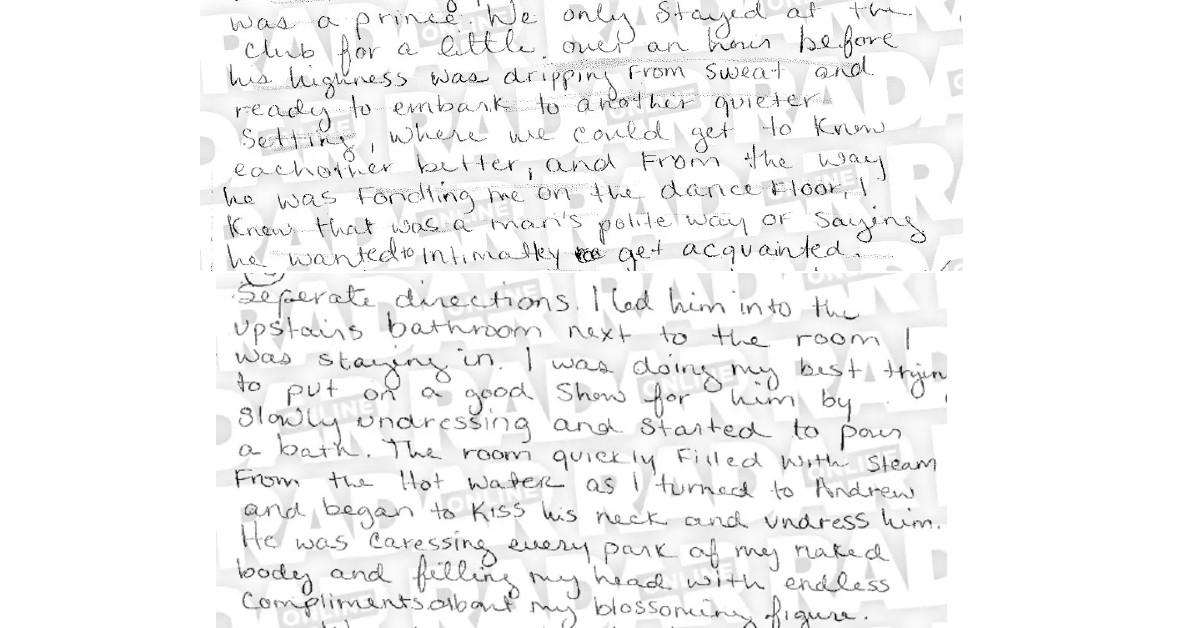 was a prince. We only stayed at the
club for a little over an hour before
his highness was dripping from sweat and
ready to embark to another quieter
Setting, where we could get to know
eachother better, and From the way
he was Fondling me on the dance Floor, I
Knew that was a man's polite way of saying
he wanted to intimatley get acquainted.
Seperate directions. I led him into the
upstairs bathroom next to the room I
was staying in. I was doing my best
to put on a good Show for him by
slowly undressing and started to pour
a bath. The room quickly Filled with steam
From the Hot water as I turned to Andrew
and began to Kiss his neck and undress him.
He was caressing every park of my naked
body and filling my head with endless
Compliments about my blossoming figure.